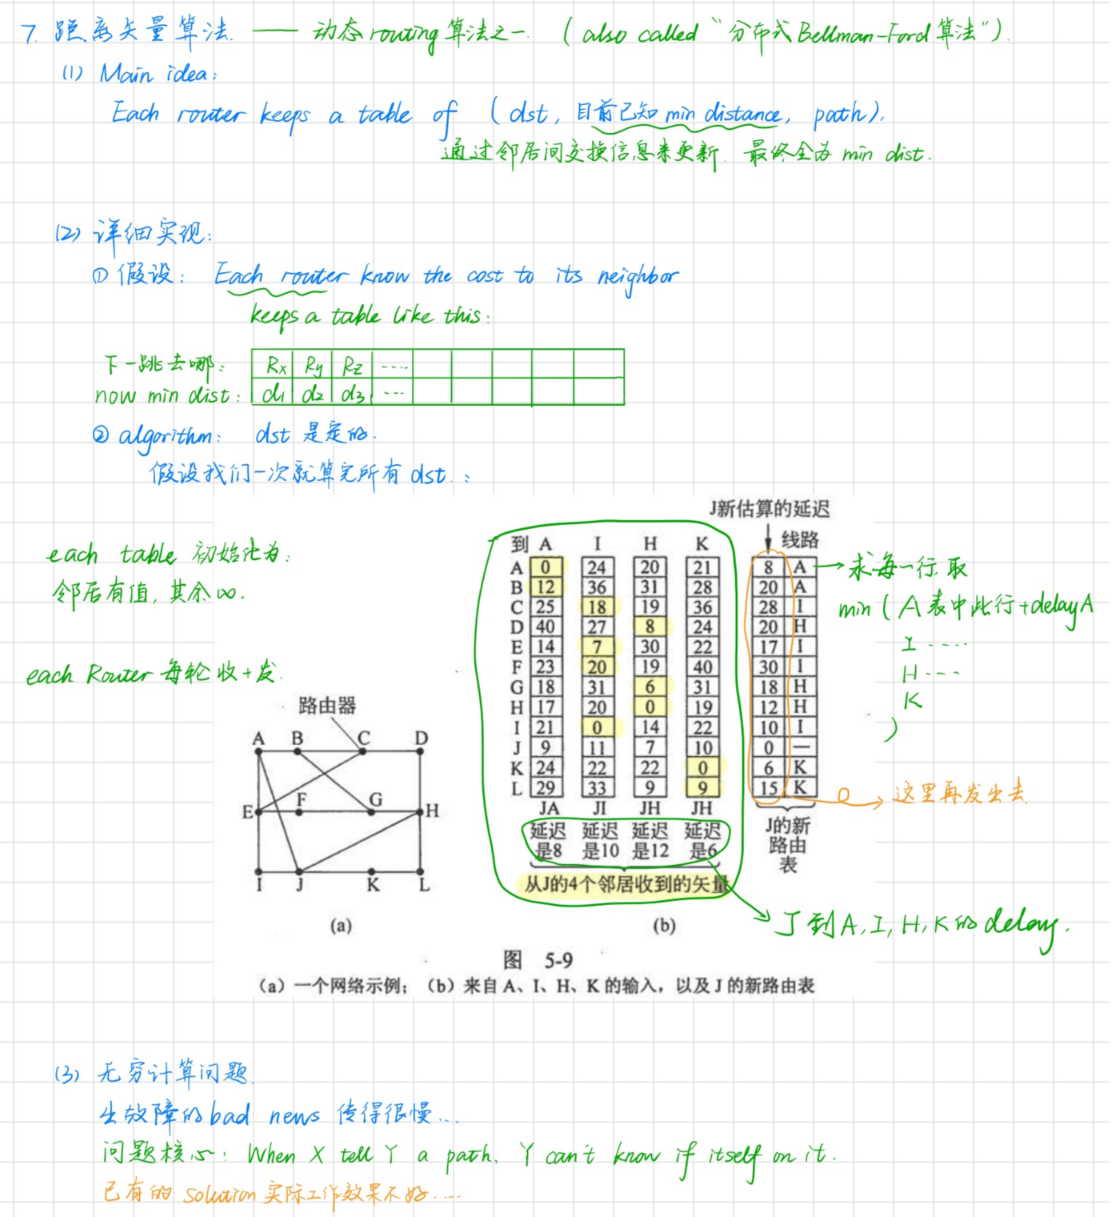 7. 距离矢量算法. —— 动态 routing 算法之一. ( also called “分布式 Bellman-Ford 算法” ).
(1) Main idea:
Each router keeps a table of ( dst, 目前已知 min distance, path ).
通过邻居间交换信息来更新. 最终全为 min dist.
(2) 详细实现:
① 假设: Each router know the cost to its neighbor
keeps a table like this:
下一跳去哪: Rx Ry Rz ····
now min dist: d1 d2 d3 ···
② algorithm: dst 是定的.
假设我们一次就算完所有 dst.:
each table 初始化为:
邻居有值, 其余∞.
each Router 每轮收+发.
路由器
A B C D
E F G H
I J K L
(a)
J新估算的延迟
到 A I H K 线路
A 0 24 20 21 8 A
B 12 36 31 28 20 A
C 25 18 19 36 28 I
D 40 27 8 24 20 H
E 14 7 30 22 17 I
F 23 20 19 40 30 I
G 18 31 6 31 18 H
H 17 20 0 19 12 H
I 21 0 14 22 10 I
J 9 11 7 10 0 —
K 24 22 22 0 6 K
L 29 33 9 9 15 K
JA JI JH JH
延迟 延迟 延迟 延迟
是8 是10 是12 是6
从J的4个邻居收到的矢量
J的新
路由
表
(b)
求每一行取
min ( A表中此行+delayA
I ····
H ····
K
)
这里再发出去
J到A, I, H, K的 delay.
图 5-9
(a) 一个网络示例; (b) 来自 A、I、H、K 的输入，以及 J 的新路由表
(3) 无穷计算问题.
出故障的 bad news 传得很慢...
问题核心: When X tell Y a path, Y can't know if itself on it.
已有的 solution 实际工作效果不好....